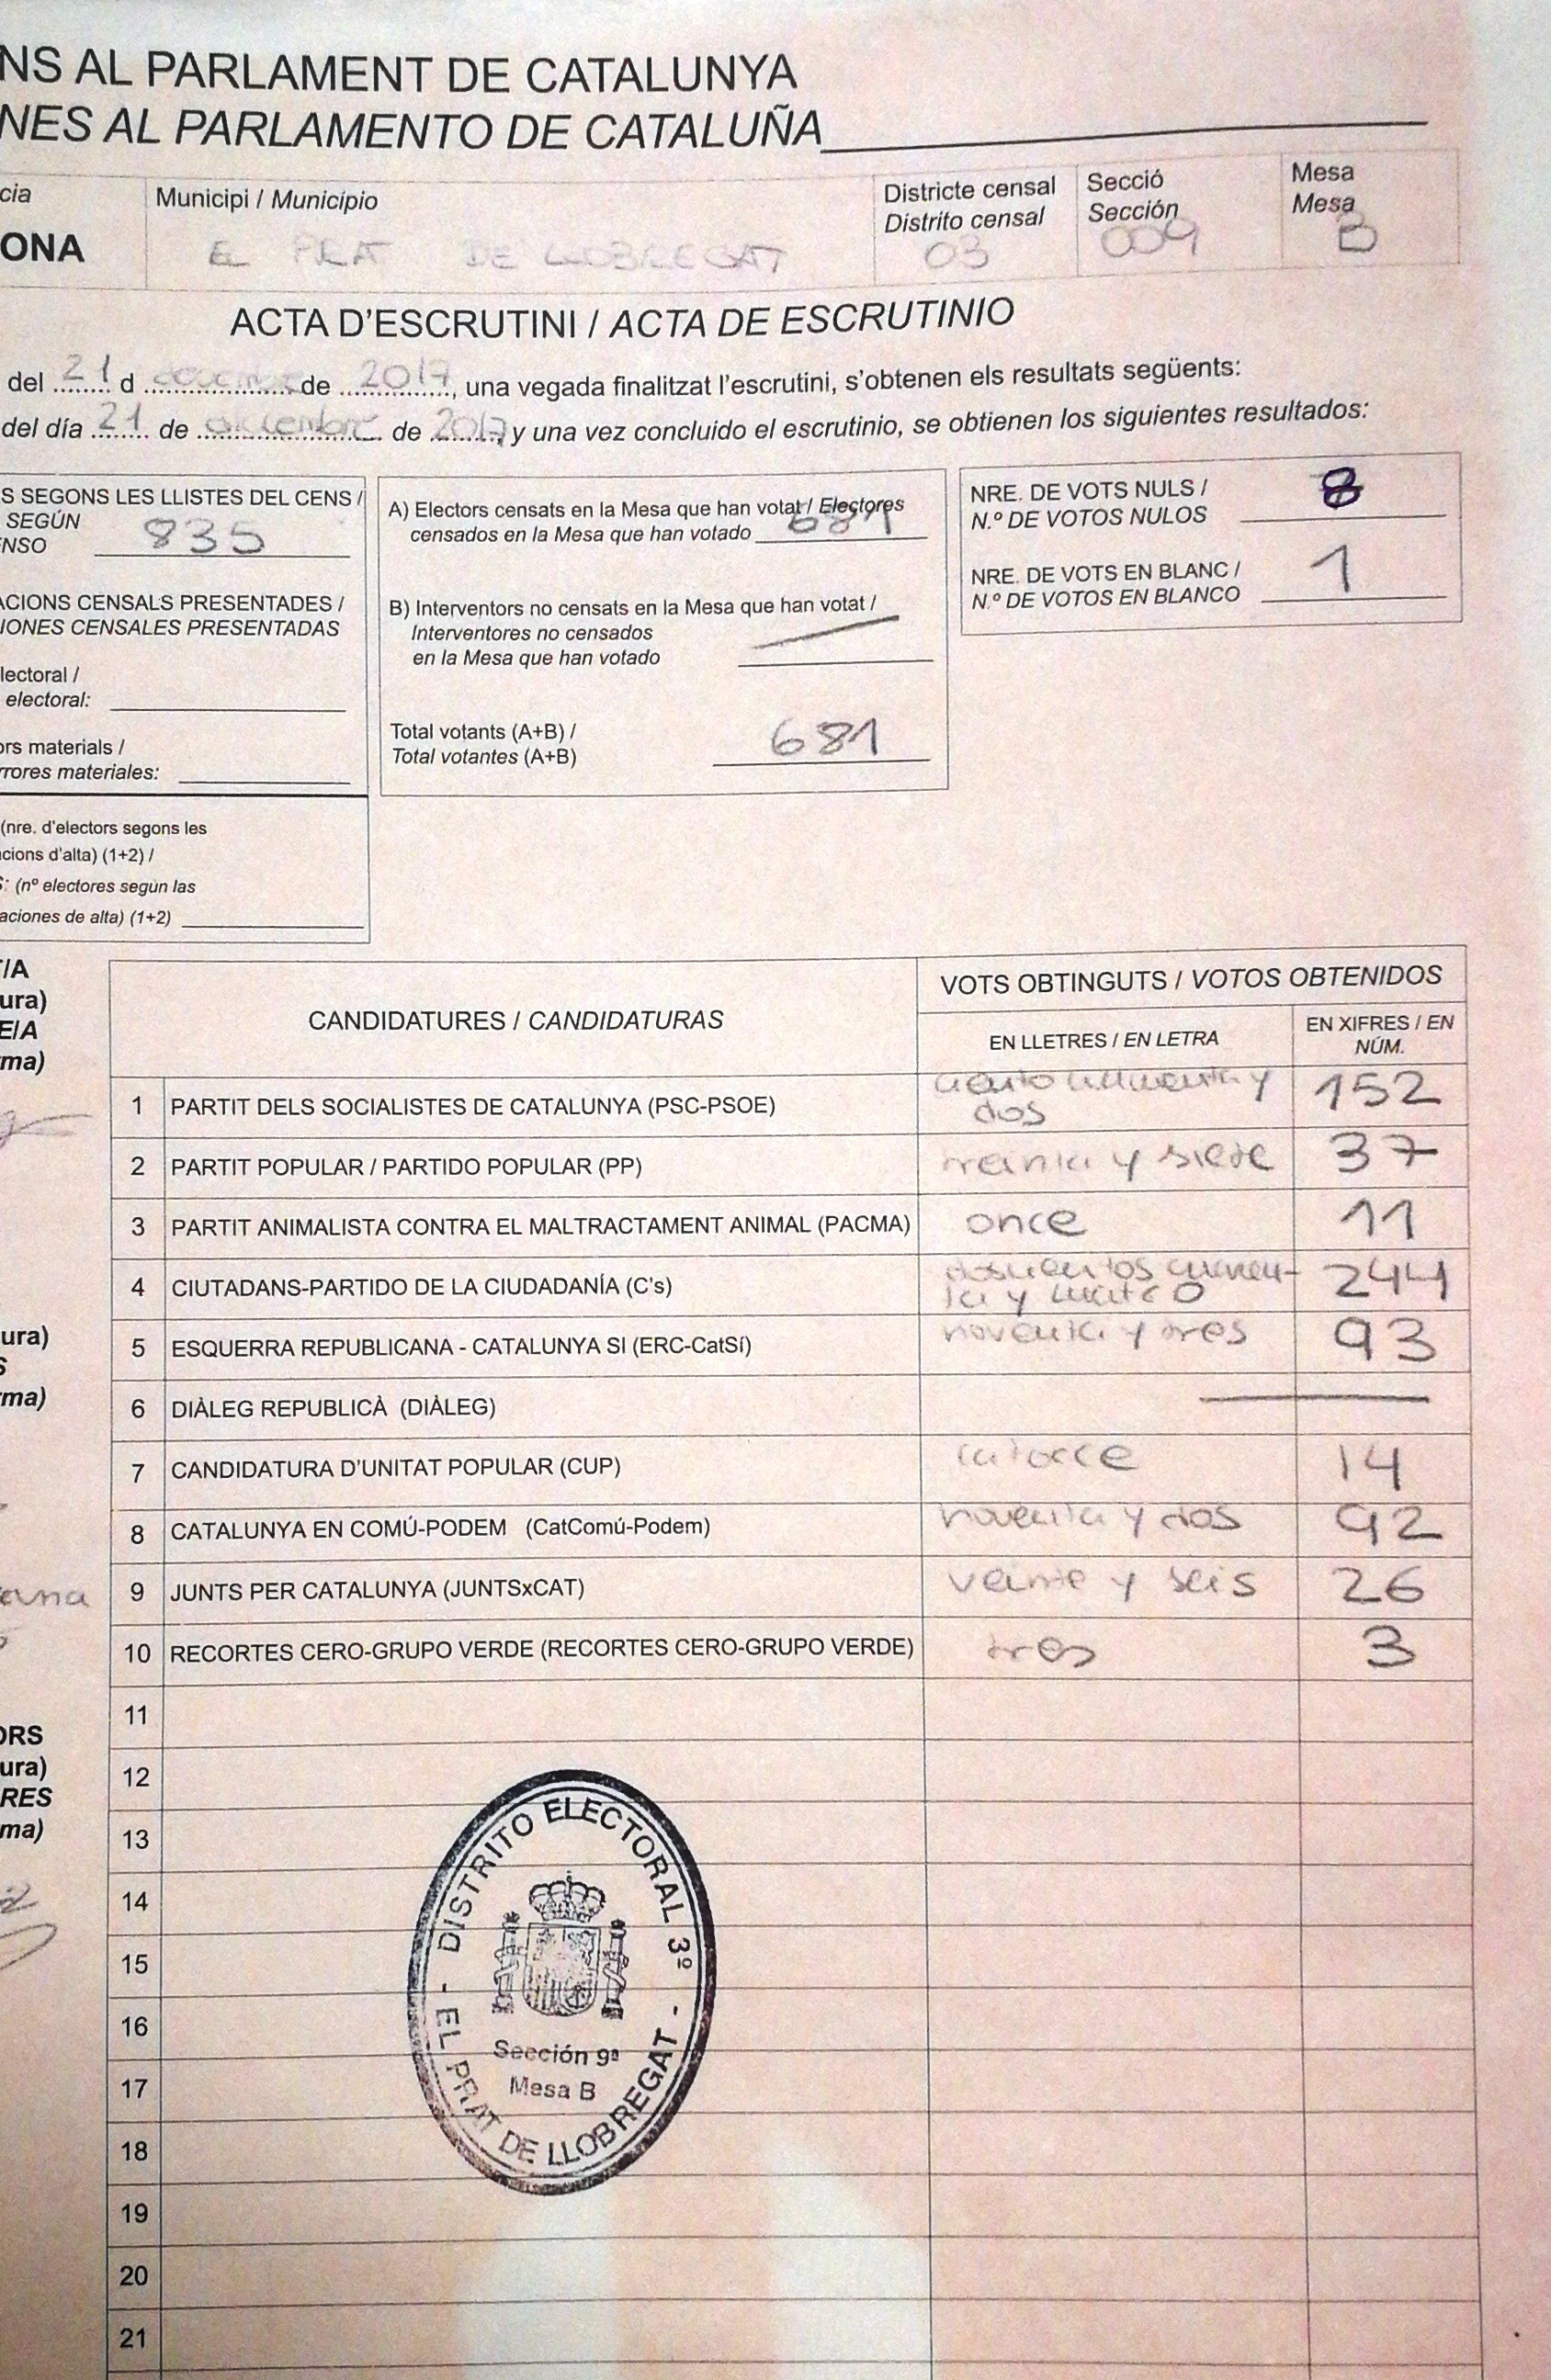 NS AL PARLAMENT DE CATALUNYA
NES AL PARLAMENTO DE CATALUÑA
cia
ONA
Municipi / Municipio
EL PRAT DE LLOBREGAT
Districte censal
Distrito censal
03
Secció
Sección
009
Mesa
Mesa
B
ACTA D'ESCRUTINI / ACTA DE ESCRUTINIO
del 21 d de 2017, una vegada finalitzat l'escrutini, s'obtenen els resultats següents:
del día 21 de diciembre de 2017, y una vez concluido el escrutinio, se obtienen los siguientes resultados:
S SEGONS LES LLISTES DEL CENS /
SEGÚN
ENSO 835
ACIONS CENSALS PRESENTADES /
IONES CENSALES PRESENTADAS
lectoral /
electoral:
ors materials /
rrores materiales:
(nre. d'electors segons les
cions d'alta) (1+2) /
S: (nº electores según las
aciones de alta) (1+2)
A) Electors censats en la Mesa que han votat / Electores
censados en la Mesa que han votado 681
B) Interventors no censats en la Mesa que han votat /
Interventores no censados
en la Mesa que han votado
Total votants (A+B) /
Total votantes (A+B) 681
NRE. DE VOTS NULS /
N.º DE VOTOS NULOS 8
NRE. DE VOTS EN BLANC /
N.º DE VOTOS EN BLANCO 1
T/A
ura)
E/A
rma)
ura)
S
rma)
ORS
ura)
RES
ma)
CANDIDATURES / CANDIDATURAS
VOTS OBTINGUTS / VOTOS OBTENIDOS
EN LLETRES / EN LETRA
EN XIFRES / EN
NÚM.
1 PARTIT DELS SOCIALISTES DE CATALUNYA (PSC-PSOE) ciento cincuenta y
dos 152
2 PARTIT POPULAR / PARTIDO POPULAR (PP) treinta y siete 37
3 PARTIT ANIMALISTA CONTRA EL MALTRACTAMENT ANIMAL (PACMA) once 11
4 CIUTADANS-PARTIDO DE LA CIUDADANÍA (C's) doscientos cuaren-
ta y cuatro 244
5 ESQUERRA REPUBLICANA - CATALUNYA SI (ERC-CatSí) noventa y tres 93
6 DIÀLEG REPUBLICÀ (DIÀLEG)
7 CANDIDATURA D'UNITAT POPULAR (CUP) catorce 14
8 CATALUNYA EN COMÚ-PODEM (CatComú-Podem) noventa y dos 92
9 JUNTS PER CATALUNYA (JUNTSxCAT) veinte y seis 26
10 RECORTES CERO-GRUPO VERDE (RECORTES CERO-GRUPO VERDE) tres 3
11
12
13
14
15
16
17
18
19
20
21
DISTRITO ELECTORAL 3º
- EL PRAT DE LLOBREGAT -
Sección 9ª
Mesa B